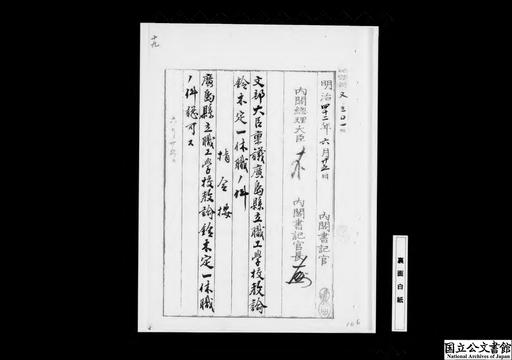 十九
文
明治四十二年六月廿五日
内閣書記官
内閣總理大臣
内閣書記官長
文部大臣稟議廣島縣立職工學校教諭
鈴木定一休職ノ件
指令按
廣島縣立職工学校教諭鈴木定一休職
ノ件認可ス
裏面白紙
国立公文書館
National Archives of Japan